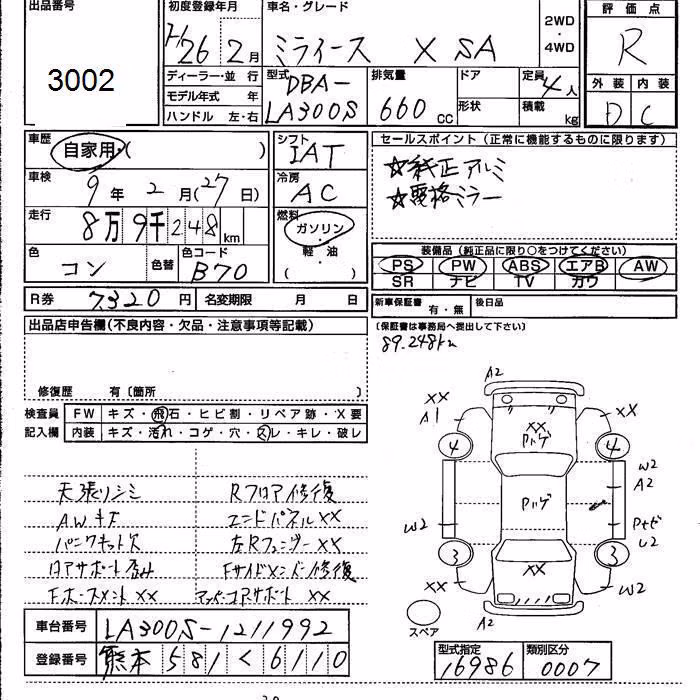 出品番号
3002
初度登録年月
H26 2月
車名・グレード
ミライース X SA
2WD・4WD
評価点
R
外装 内装
D C
ディーラー・並 行
モデル年式 年
ハンドル 左・右
型式
DBA-
LA300S
排気量
660 cc
ドア
形状
定員
4人
積載
kg
車歴
自家用・( )
シフト
IAT
車検
9年 2月(27日)
冷房
AC
走行
8万9千248km
燃料
ガソリン・軽・油
( )
色
コン
色替
色コード
B70
セールスポイント(正常に機能するものに限ります)
☆純正アルミ
☆電格ミラー
装備品(純正品に限り○をつけてください)
PS PW ABS エアB AW
SR ナビ TV カワ
R券 7320円 名変期限 月 日
新車保証書 有・無 後日品
(保証書は事務局へ提出して下さい)
89.248km
出品店申告欄(不良内容・欠品・注意事項等記載)
修復歴 有〔箇所 〕
検査員記入欄
FW キズ・飛石・ヒビ割・リペア跡・X要
内装 キズ・汚れ・コゲ・穴・スレ・キレ・破レ
天張リシミ
Rフロア修復
AWキズ
エンドパネルXX
パンクキット欠
左RフェンダーXX
コアサポート歪み
Fサイドメンバー修復
FホースメントXX
アッパーコアサポートXX
A2
XX XX
A1 XX A2
ハゲ
4 4
W2
A2
ハゲ
W2
U2
3 3
XX XX XX
A2
スペア
車台番号 LA300S-1211992
登録番号 熊本 581 く 6110
型式指定
16986
類別区分
0007